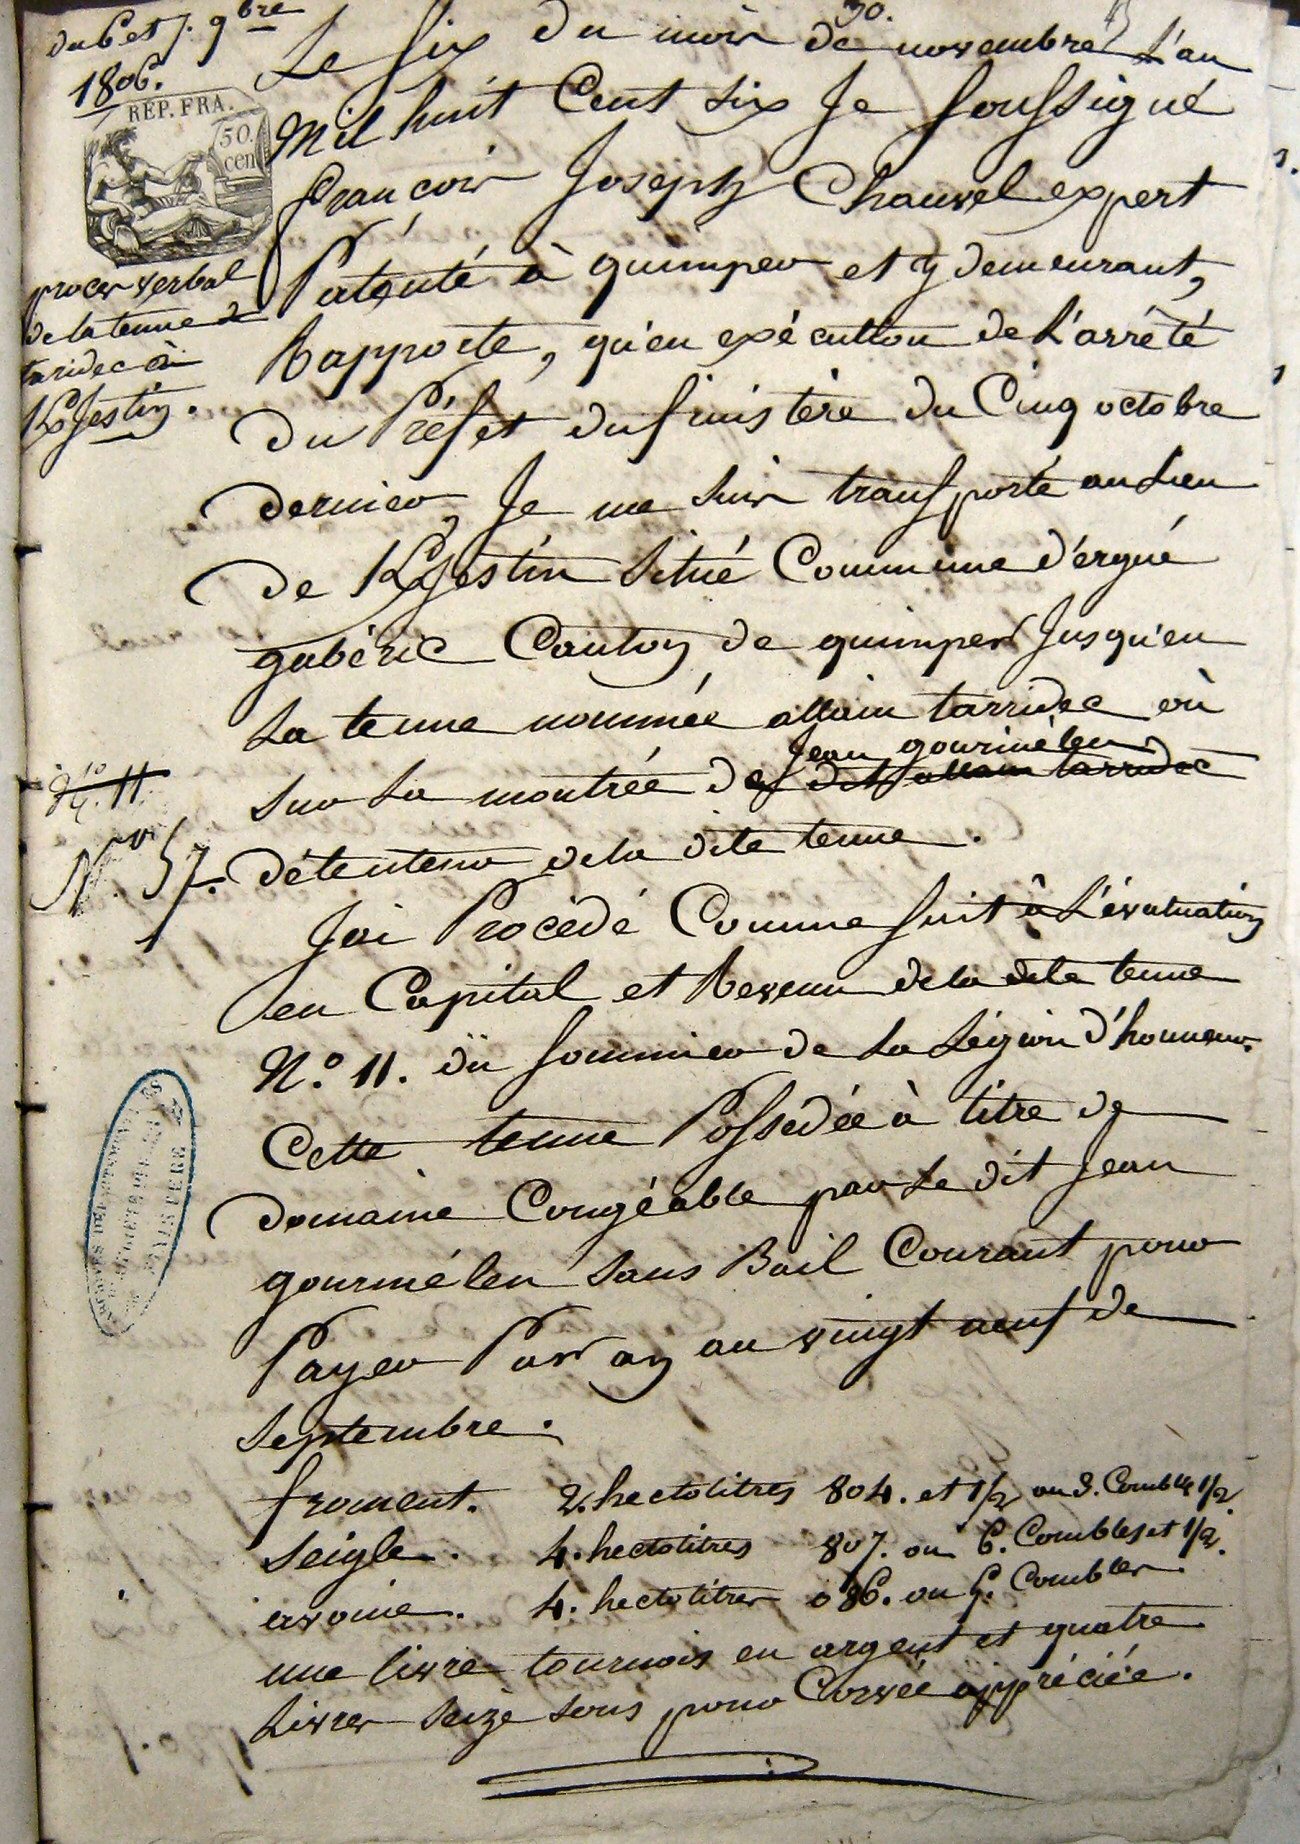 du 6 et 7. 9bre
1806.
REP. FRA.
50.
cen
procès verbal
de la tenue de
taridec en
K/jestin.
N.° 11
N.ro 57.
30.
Le six du mois de novembre L'an
Mil huit Cent six Je soussigné
François Joseph Chauvel expert
Patenté à quimper et y demeurant,
Rapporte, qu'en exécution de L'arrêté
Du Préfet du finistère du Cinq octobre
dernier, Je me suis transporté au Lieu
De K/jestin situé Commune d'ergué
gabéric Canton de quimper Jusqu'en
La tenue nommée allain tarridec où
Jean gourmélen
sur La montrée de dit allain tarridec
détenteur de la dite tenue.
J'ai Procédé Comme suit à L'évaluation
en Capital et Revenu de la dite tenue
N.° 11. du sommier de La Légion d'honneur.
Cette tenue Possédée à titre de
domaine Congéable par Le dit Jean
gourmélen sans Bail Courant pour
Payer Par an au vingt neuf de
Septembre.
froment. 2. hectolitres 804. et 1/2 ou 3. Combles 1/2.
Seigle. 4. hectolitres 807. ou 6. Combles et 1/2.
avoine. 4. hectolitres 086. ou 5. Combles.
une livre tournois en argent et quatre
Livres seize sous pour Corvée appréciée.
ARCHIVES DÉPARTEMENTALES
FINISTÈRE